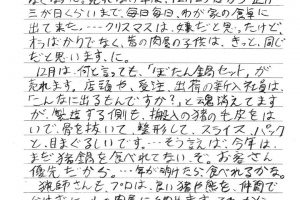 三が日くらいまで、毎日毎日、わが家の食卓に
出て来た。……クリスマスは、嫌だと思った。けど
すっぱかりでなく、昔の肉屋の子供は、きっと、同じ
だと思います。に。
12月は、何と言っても、「ぼたん鍋セット」が、
売れます。店頭や、受注、出荷の新人社員は、
「こんなに出るもんですか?」と、魂消えてます
が、製造する側も、搬入の猪の毛皮をは
いで、骨を抜いて、整形して、スライス、パック
と、目まぐるしいです。…そう言えば、今年は、
まだ猪鍋を食べれてないぞ。お客さん
優先だから。…年が明けたら、食べれるかな。
猟師さんも、プロは、良い猪や鹿を、仲間で